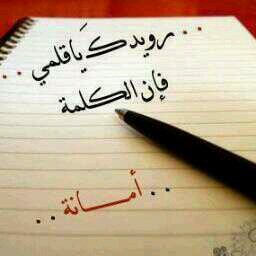 .. رويدك يَا قلمي ..
فإن الكلمة
.. أمانة ..